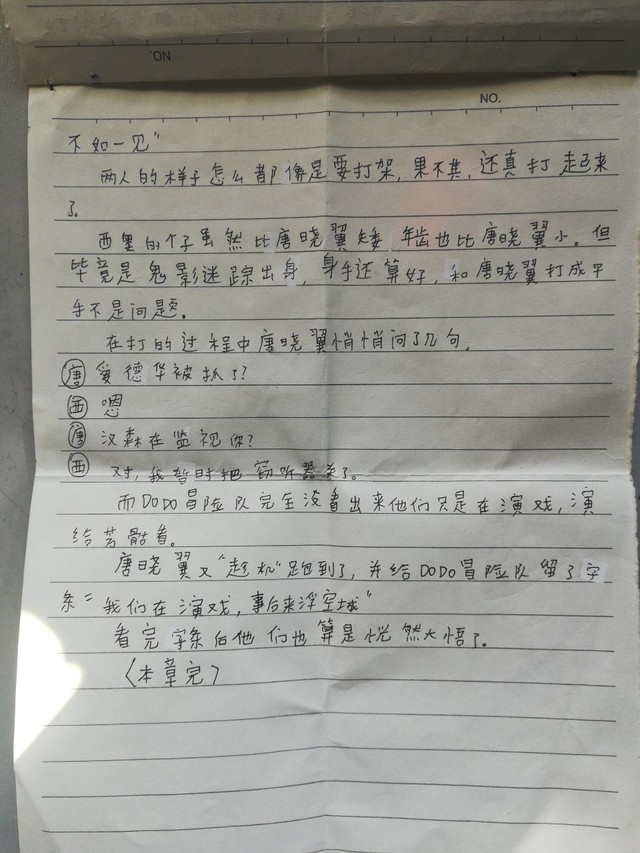 NO.
NO.
不如一见"
两人的样子怎么都像是要打架,果不其,还真打起来
了。
西墨的个子虽然比唐晓翼矮,年齿也比唐晓翼小。但
毕竟是鬼影迷踪出身,身手还算好,和唐晓翼打成平
手不是问题。
在打的过程中唐晓翼悄悄问了几句。
唐 爱德华被抓了?
西 嗯
唐 汉森在监视你?
西 对,我暂时把窃听器关了。
而DODO冒险队完全没看出来他们只是在演戏,演
给若骷看。
唐晓翼又"趁机"跑到了,并给DODO冒险队留了字
条="我们在演戏,事后来浮空城"
看完字条后他们也算是恍然大悟了。
〈本章完〉